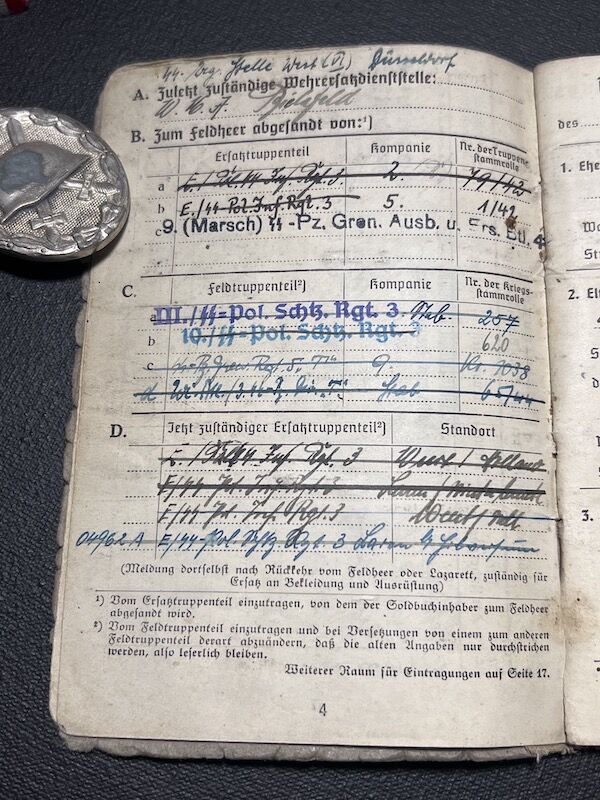 SS-Erg. Stelle West (VI) Düsseldorf
A. Zuletzt zuständige Wehrersatzdienststelle:
W. E. A. Bielefeld
B. Zum Feldheer abgesandt von:¹)
Ersatztruppenteil Kompanie Nr. der Truppenstammrolle
a E./Pol. SS Inf. Rgt. 3 2. 79/42
b E./SS Pol. Inf. Rgt. 3 5. 1/42
c 9. (Marsch) SS-Pz. Gren. Ausb. u. Ers. Btl. 4
C. Feldtruppenteil²) Kompanie Nr. der Kriegsstammrolle
a III./SS-Pol. Schtz. Rgt. 3. Stab 257
b 10./SS-Pol. Schtz. Rgt. 3 620
c 9.
d Stab
D. Jetzt zuständiger Ersatztruppenteil²) Standort
E./Pol. SS Inf. Rgt. 3
E/SS Pol. Inf. Rgt. 3
E/SS Pol. Inf. Rgt. 3
04962 A E/SS-Pol. Schtz. Rgt. 3 Laren b. Hilversum
(Meldung dortselbst nach Rückkehr vom Feldheer oder Lazarett, zuständig für
Ersatz an Bekleidung und Ausrüstung)
¹) Vom Ersatztruppenteil einzutragen, von dem der Soldbuchinhaber zum Feldheer
abgesandt wird.
²) Vom Feldtruppenteil einzutragen und bei Versetzungen von einem zum anderen
Feldtruppenteil derart abzuändern, daß die alten Angaben nur durchstrichen
werden, also leserlich bleiben.
Weiterer Raum für Eintragungen auf Seite 17.
4
des
1. Ehe
2. El
3.